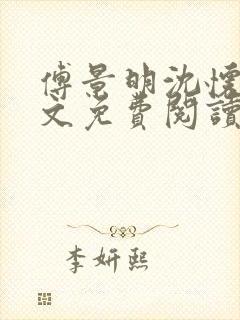 傅景明沈懷
文免費閱讀
李妍熙